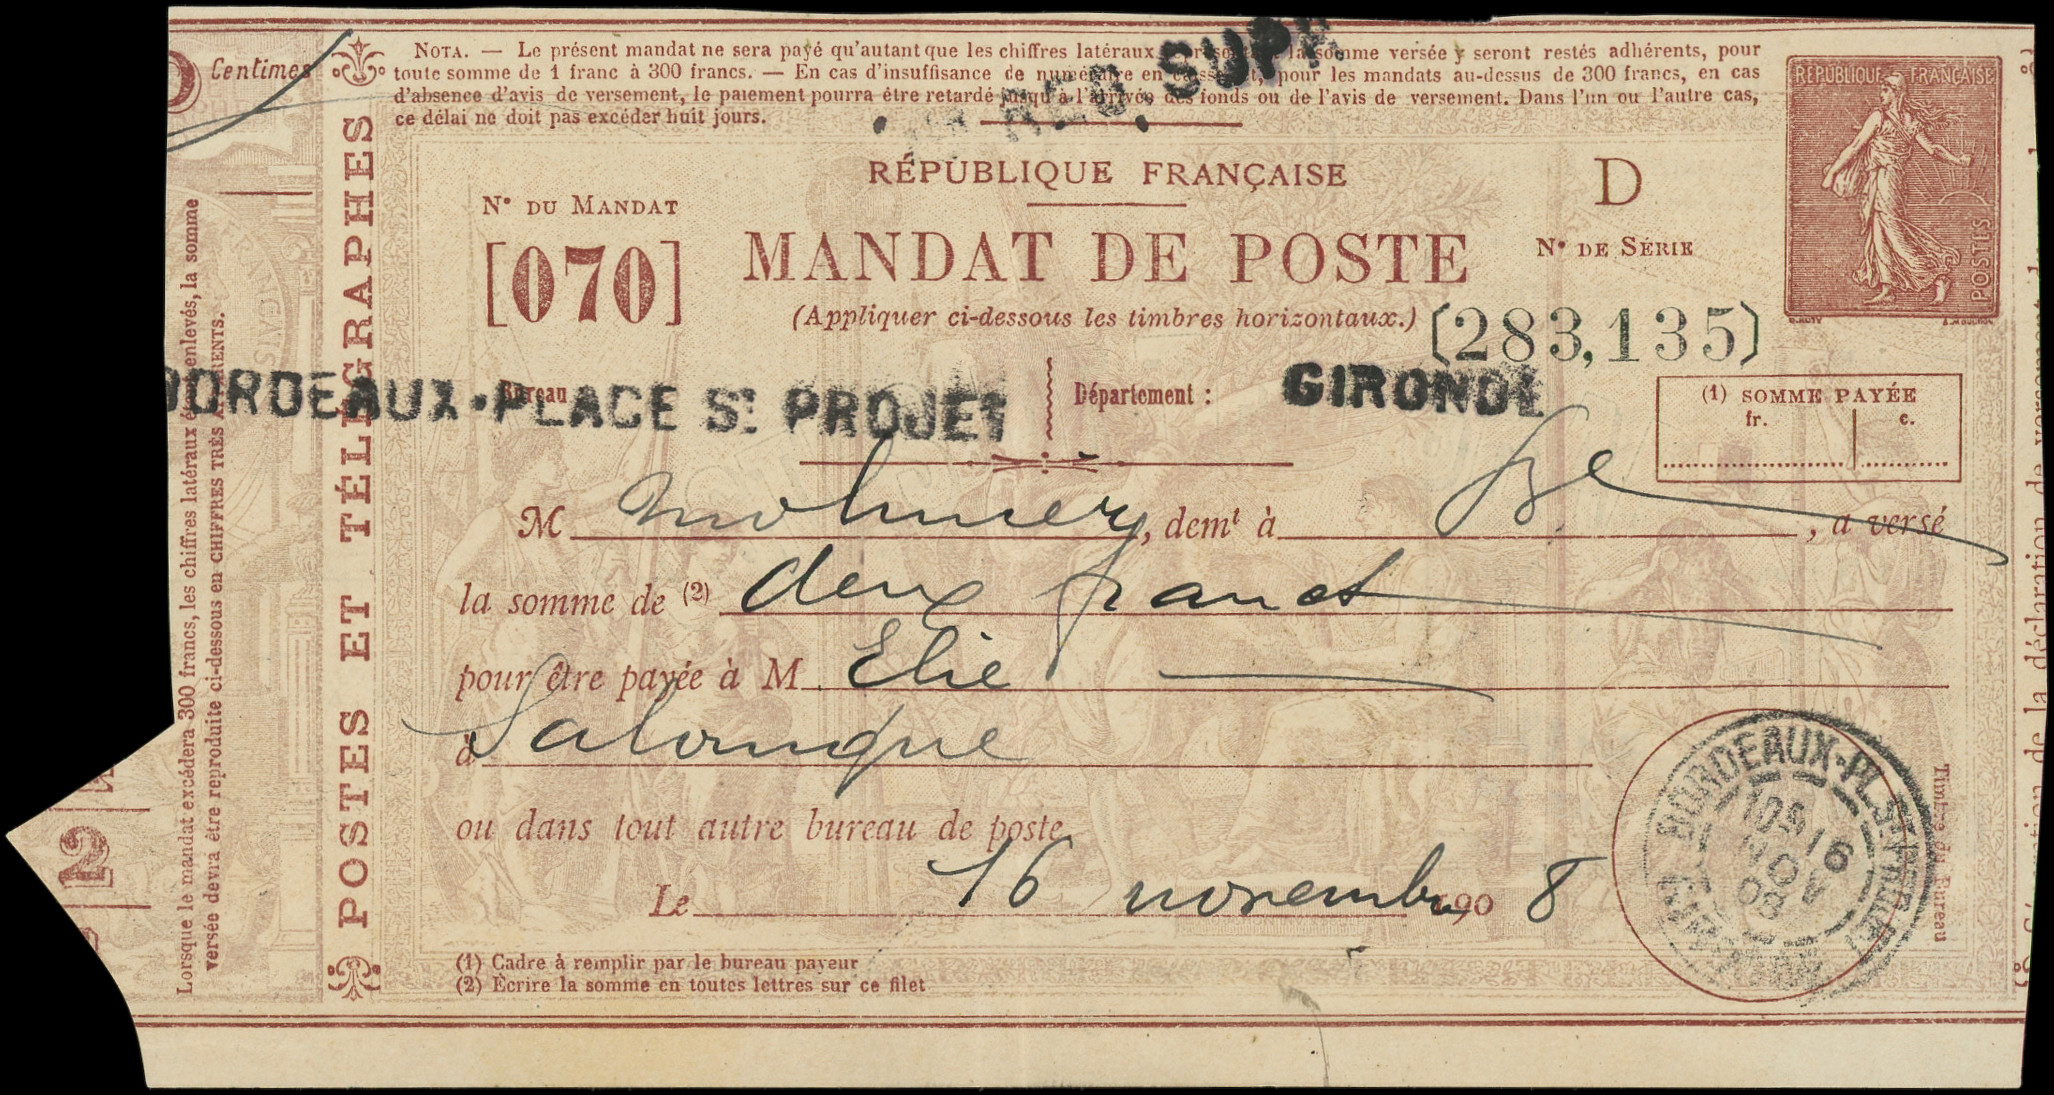 Centimes
NOTA. — Le présent mandat ne sera payé qu'autant que les chiffres latéraux la somme versée y seront restés adhérents, pour
toute somme de 1 franc à 300 francs. — En cas d'insuffisance de numéraire en caisse et, pour les mandats au-dessus de 300 francs, en cas
d'absence d'avis de versement, le paiement pourra être retardé jusqu'à l'arrivée des fonds ou de l'avis de versement. Dans l'un ou l'autre cas,
ce délai ne doit pas excéder huit jours.
SUPR
RÉPUBLIQUE FRANÇAISE
POSTES
RÉPUBLIQUE FRANÇAISE
D
N° DU MANDAT
[070]
MANDAT DE POSTE
N° DE SÉRIE
(Appliquer ci-dessous les timbres horizontaux.)
(283,135)
Bureau
BORDEAUX-PLACE St PROJET
Département :
GIRONDE
(1) SOMME PAYÉE
fr. c.
M, demt à Bx, a versé
la somme de (2) deux francs
pour être payée à M Elie
à Salonique
ou dans tout autre bureau de poste
Le 16 novembre 1908
BORDEAUX-PL. St PROJET
16
NOV
08
Timbre du Bureau
(1) Cadre à remplir par le bureau payeur
(2) Écrire la somme en toutes lettres sur ce filet
POSTES ET TÉLÉGRAPHES
Lorsque le mandat excédera 300 francs, les chiffres latéraux étant enlevés, la somme
versée devra être reproduite ci-dessous en CHIFFRES TRÈS APPARENTS.
12
de la déclaration de versement